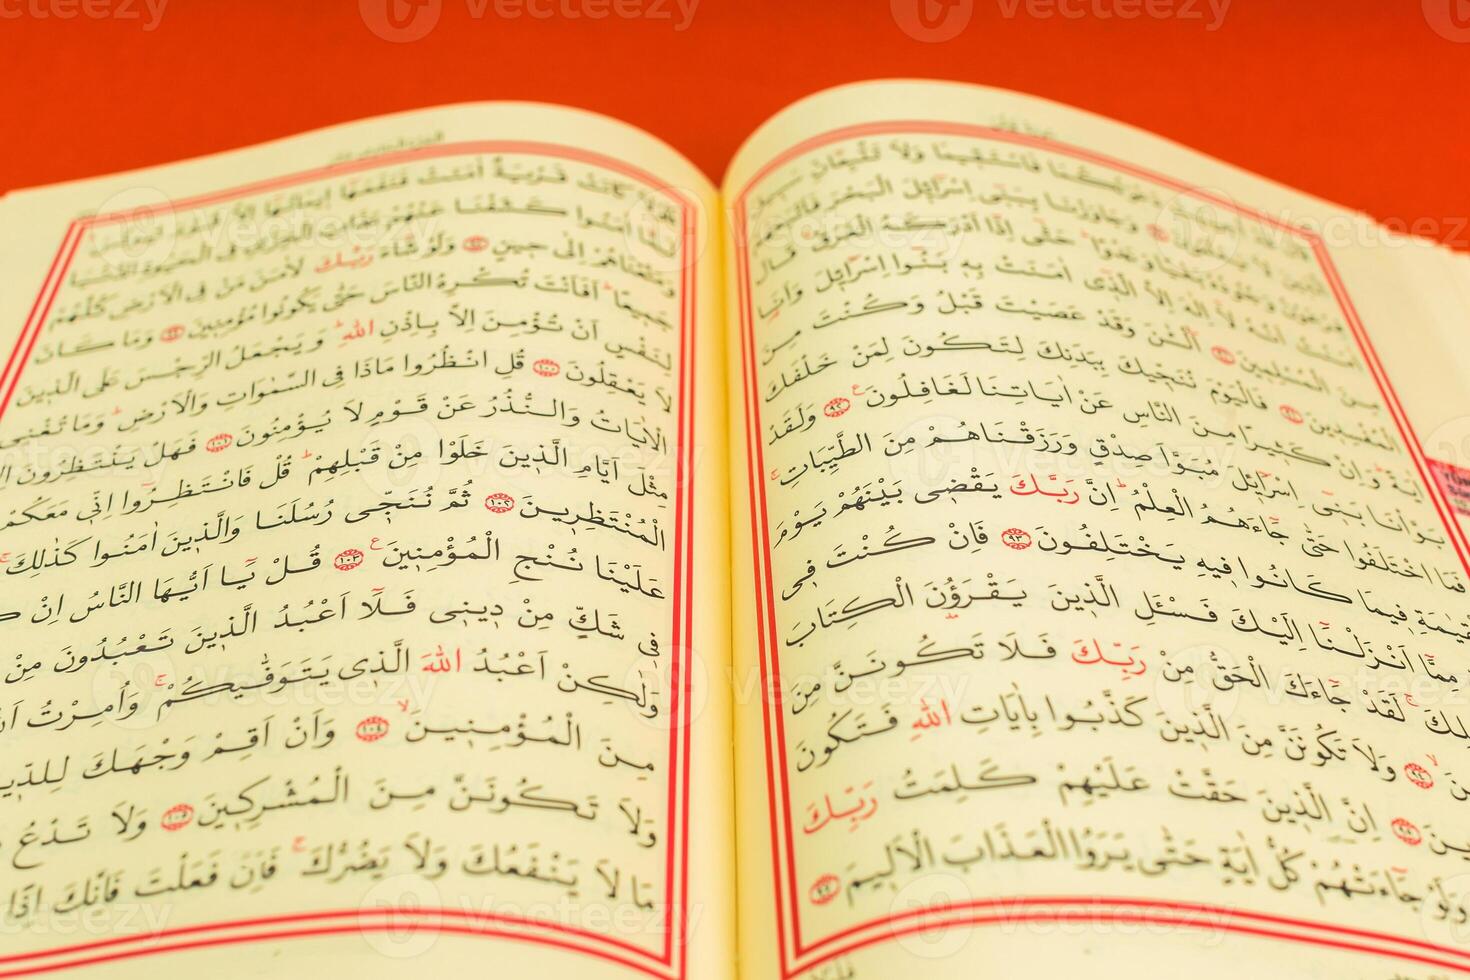 وَجَاوَزْنَا بِبَنِٓي اِسْرَٓائِلَ الْبَحْرَ
حَتّٰٓى اِذَٓا اَدْرَكَهُ الْغَرَقُۙ قَالَ
اٰمَنْتُ اَنَّهُ لَٓا اِلٰهَ اِلَّا الَّذِٓي اٰمَنَتْ بِهِ بَنُٓوا اِسْرَٓائِلَ وَاَنَا۬
مِنَ الْمُسْلِمِينَ ﴿٩٠﴾ آٰلْـٰٔنَ وَقَدْ عَصَيْتَ قَبْلُ وَكُنْتَ مِنَ
الْمُفْسِدِينَ ﴿٩١﴾ فَالْيَوْمَ نُنَجِّيكَ بِبَدَنِكَ لِتَكُونَ لِمَنْ خَلْفَكَ
اٰيَةًۜ وَاِنَّ كَثِيرًا مِنَ النَّاسِ عَنْ اٰيَاتِنَا لَغَافِلُونَ ﴿٩٢﴾ وَلَقَدْ
بَوَّأْنَا بَنِٓي اِسْرَٓائِلَ مُبَوَّاَ صِدْقٍ وَرَزَقْنَاهُمْ مِنَ الطَّيِّبَاتِۚ
فَمَا اخْتَلَفُوا حَتّٰى جَٓاءَهُمُ الْعِلْمُۜ اِنَّ رَبَّكَ يَقْضِي بَيْنَهُمْ يَوْمَ
الْقِيٰمَةِ فِيمَا كَانُوا فِيهِ يَخْتَلِفُونَ ﴿٩٣﴾ فَاِنْ كُنْتَ فِي
مِمَّٓا اَنْزَلْنَٓا اِلَيْكَ فَسْـَٔلِ الَّذِينَ يَقْرَؤُ۫نَ الْكِتَابَ
لَقَدْ جَٓاءَكَ الْحَقُّ مِنْ رَبِّكَ فَلَا تَكُونَنَّ مِنَ
﴿٩٤﴾ وَلَا تَكُونَنَّ مِنَ الَّذِينَ كَذَّبُوا بِاٰيَاتِ اللّٰهِ فَتَكُونَ
﴿٩٥﴾ اِنَّ الَّذِينَ حَقَّتْ عَلَيْهِمْ كَلِمَتُ رَبِّكَ
وَلَوْ جَٓاءَتْهُمْ كُلُّ اٰيَةٍ حَتّٰى يَرَوُا الْعَذَابَ الْاَلِيمَ ﴿٩٧﴾
فَلَوْلَا كَانَتْ قَرْيَةٌ اٰمَنَتْ فَنَفَعَهَٓا اِيمَانُهَٓا اِلَّا
لَمَّٓا اٰمَنُوا كَشَفْنَا عَنْهُمْ عَذَابَ الْخِزْيِ فِي الْحَيٰوةِ الدُّنْيَا
وَمَتَّعْنَاهُمْ اِلٰى حِينٍ ﴿٩٨﴾ وَلَوْ شَٓاءَ رَبُّكَ لَاٰمَنَ مَنْ فِي الْاَرْضِ كُلُّهُمْ
جَمِيعًاۜ اَفَاَنْتَ تُكْرِهُ النَّاسَ حَتّٰى يَكُونُوا مُؤْمِنِينَ ﴿٩٩﴾ وَمَا كَانَ
لِنَفْسٍ اَنْ تُؤْمِنَ اِلَّا بِاِذْنِ اللّٰهِۜ وَيَجْعَلُ الرِّجْسَ عَلَى الَّذِينَ
لَا يَعْقِلُونَ ﴿١٠٠﴾ قُلِ انْظُرُوا مَاذَا فِي السَّمٰوَاتِ وَالْاَرْضِۜ وَمَا تُغْنِي
الْاٰيَاتُ وَالنُّذُرُ عَنْ قَوْمٍ لَا يُؤْمِنُونَ ﴿١٠١﴾ فَهَلْ يَنْتَظِرُونَ
مِثْلَ اَيَّامِ الَّذِينَ خَلَوْا مِنْ قَبْلِهِمْۜ قُلْ فَانْتَظِرُٓوا اِنِّي مَعَكُمْ
الْمُنْتَظِرِينَ ﴿١٠٢﴾ ثُمَّ نُنَجِّي رُسُلَنَا وَالَّذِينَ اٰمَنُوا كَذٰلِكَۚ
عَلَيْنَا نُنْجِ الْمُؤْمِنِينَ ﴿١٠٣﴾ قُلْ يَٓا اَيُّهَا النَّاسُ اِنْ
فِي شَكٍّ مِنْ دِينِي فَلَٓا اَعْبُدُ الَّذِينَ تَعْبُدُونَ مِنْ
وَلٰكِنْ اَعْبُدُ اللّٰهَ الَّذِي يَتَوَفّٰيكُمْۚ وَاُمِرْتُ اَنْ
مِنَ الْمُؤْمِنِينَۙ ﴿١٠٤﴾ وَاَنْ اَقِمْ وَجْهَكَ لِلدِّينِ
وَلَا تَكُونَنَّ مِنَ الْمُشْرِكِينَ ﴿١٠٥﴾ وَلَا تَدْعُ
مَا لَا يَنْفَعُكَ وَلَا يَضُرُّكَۚ فَاِنْ فَعَلْتَ فَاِنَّكَ اِذًا